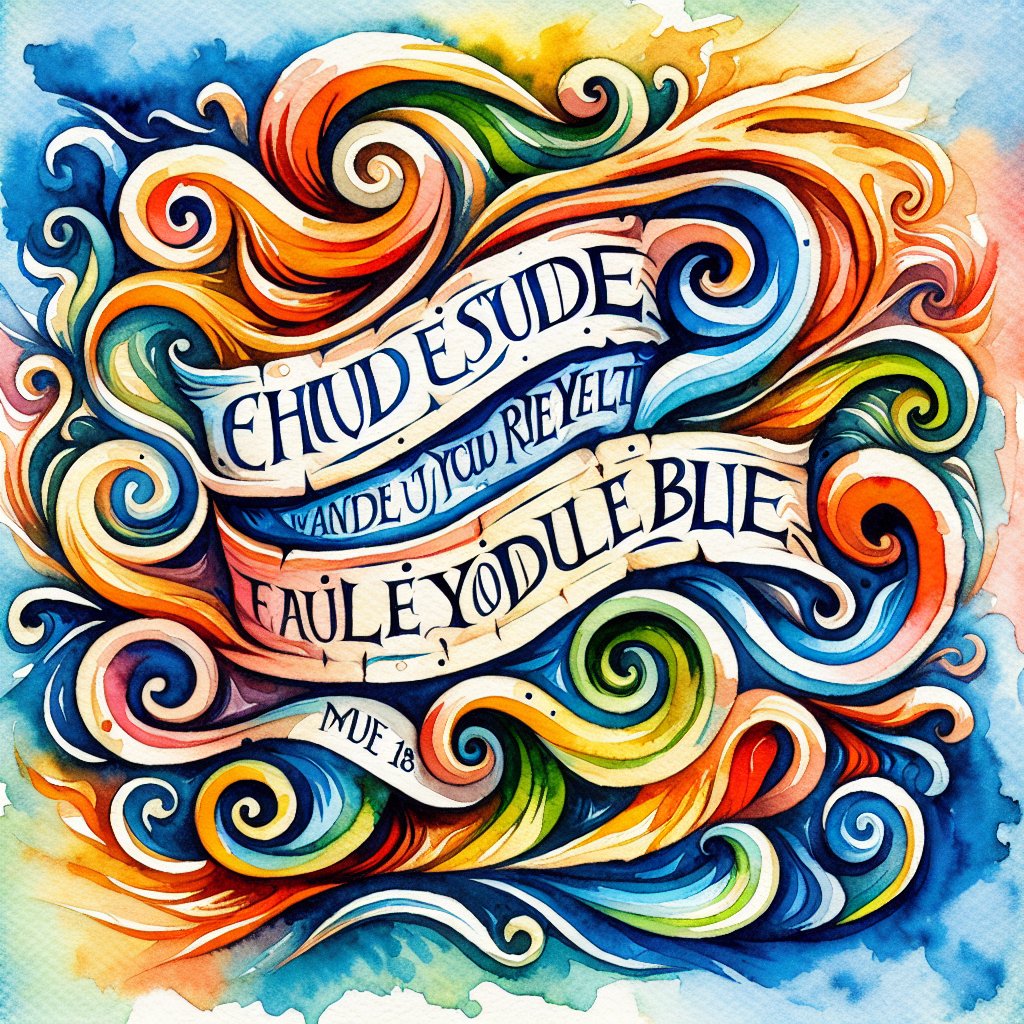 EHIUD ESUIDE
VANDE UYOU RIEYELT
EAULE YODULE BLUE
MUE 18